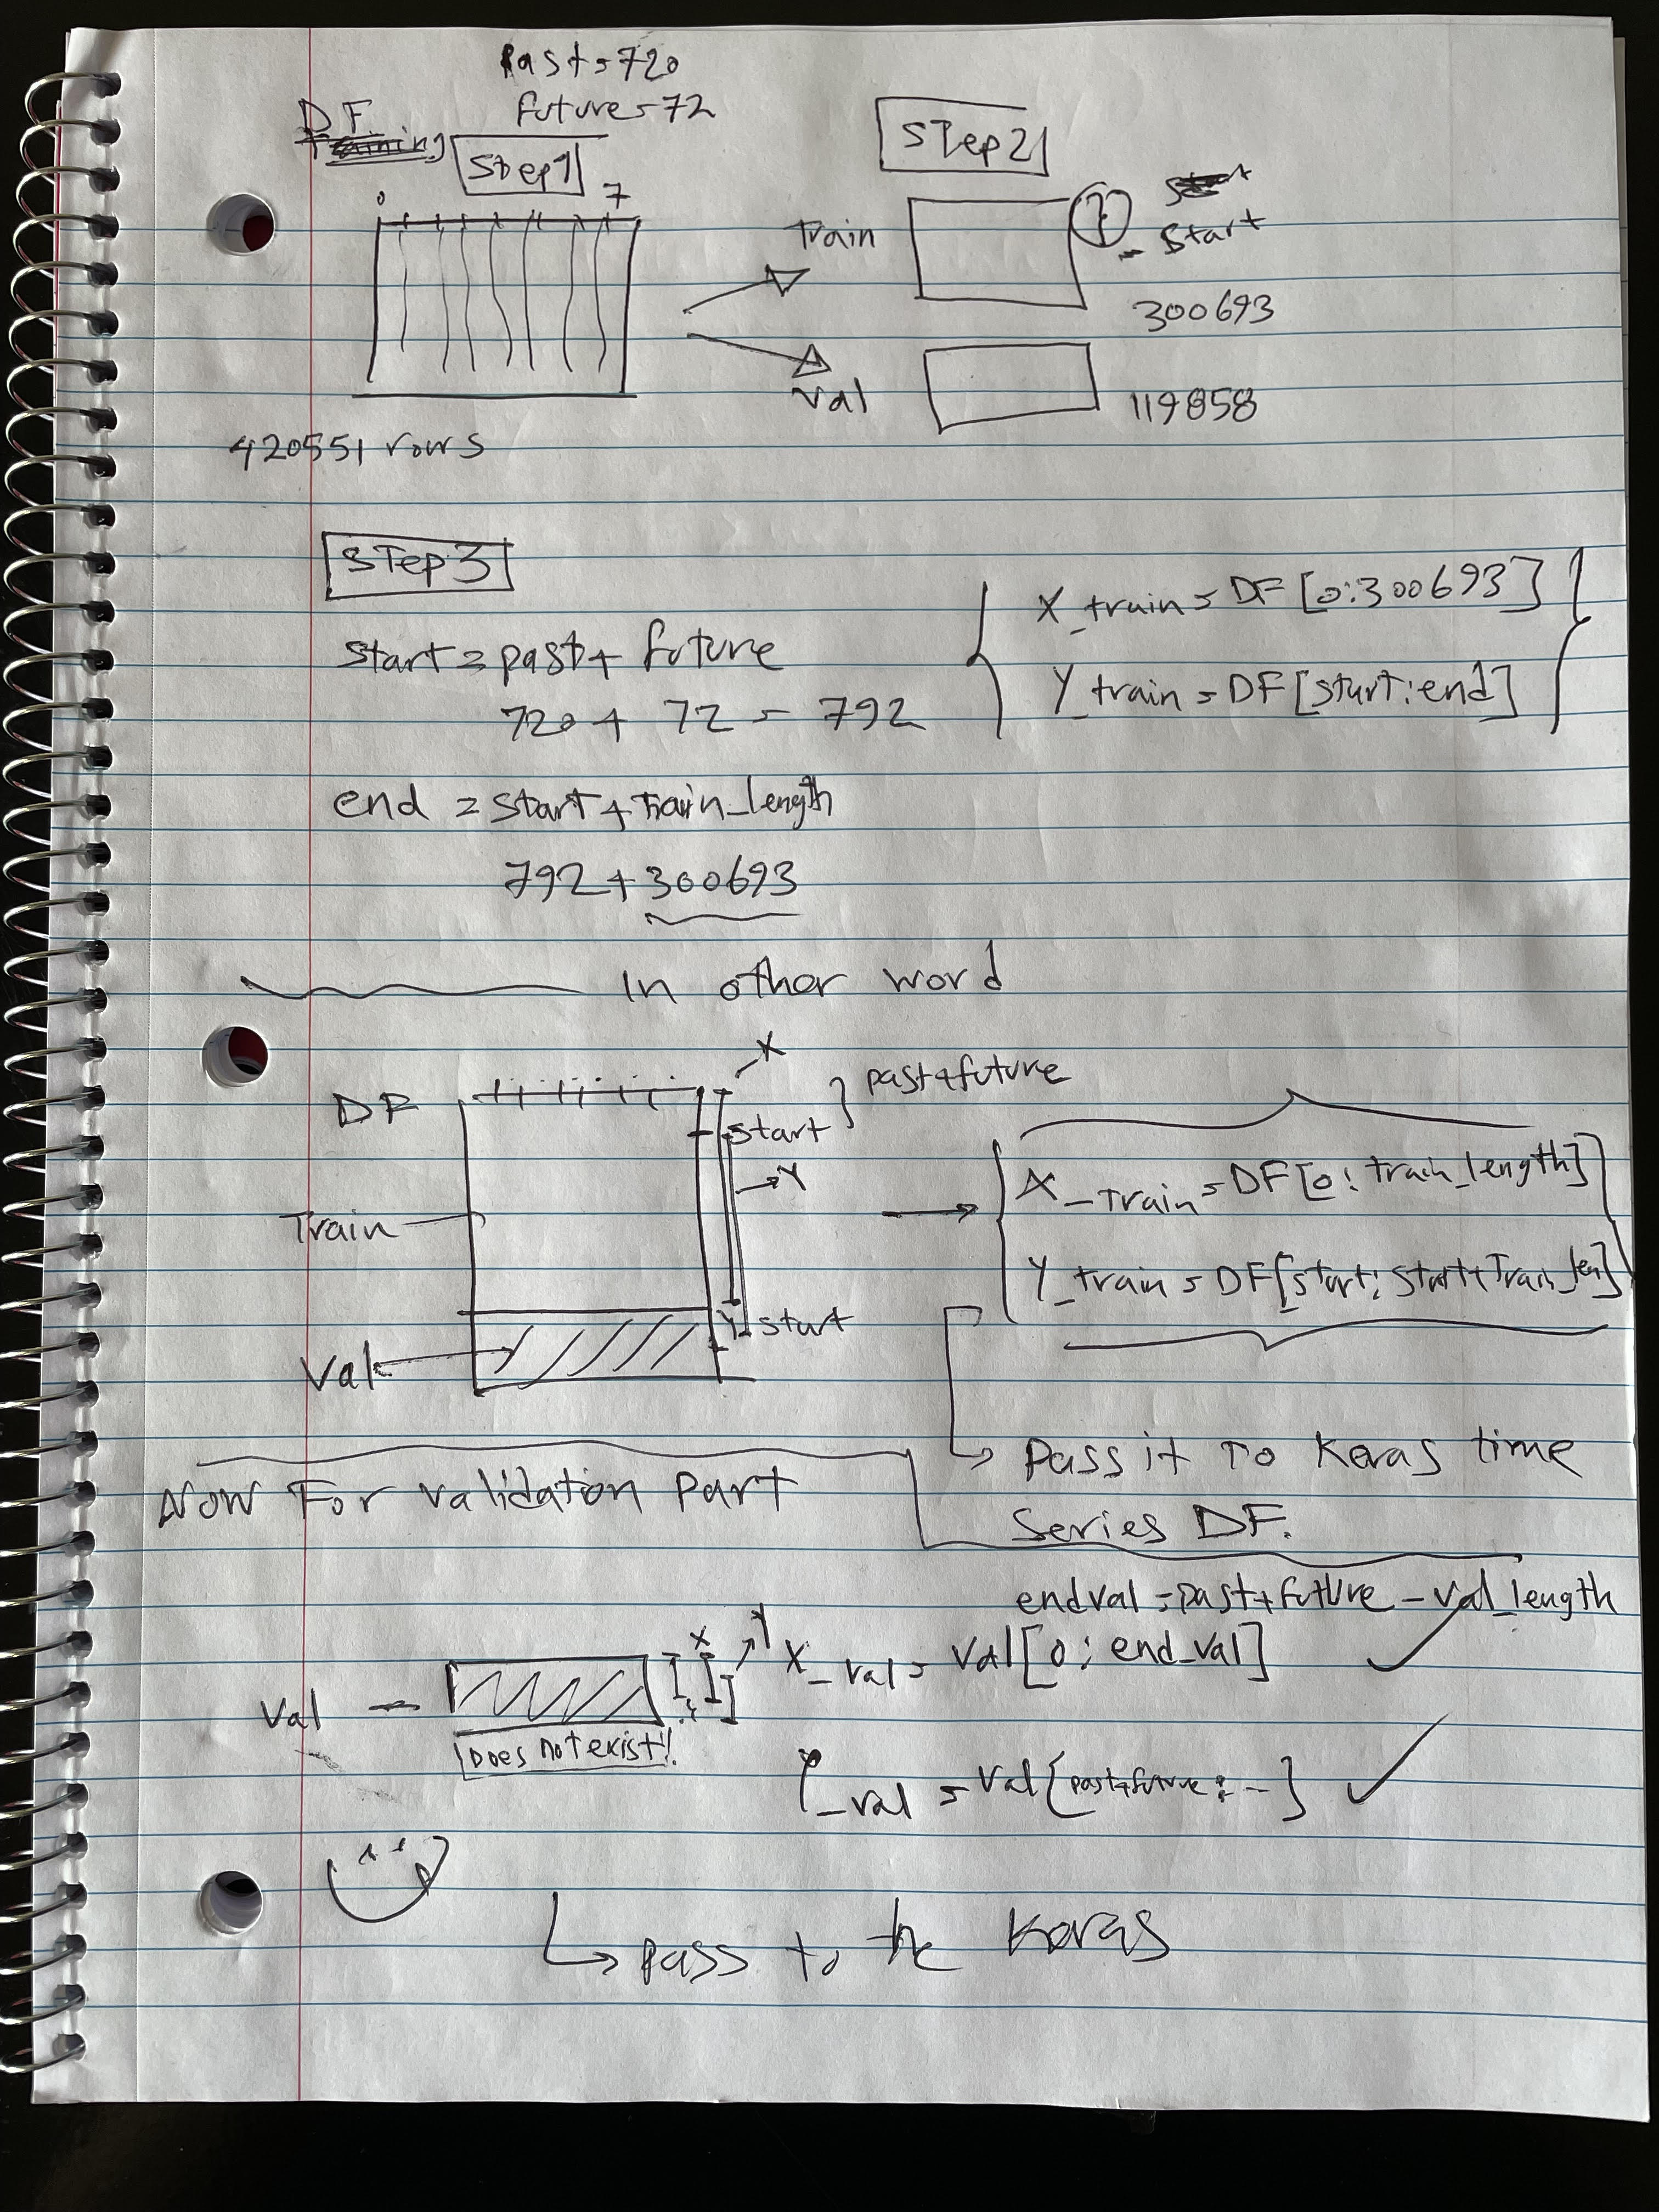 Past = 720
future = 72
DF
Step1
0 7
420551 rows
Step2
Train
Start
300693
Val
119858
Step3
start = past + future
720 + 72 = 792
end = start + train_length
792 + 300693
X_train = DF [0:300693]
Y_train = DF [start:end]
In other word
DF
X
past+future
start
Y
Train
start
Val
X_Train = DF[0: train_length]
Y_train = DF[start: start+Train_len]
Pass it to Keras time
Series DF.
Now For validation part
endval = past+future - val_length
X Y
X_val = Val[0: end_val]
Val
Does not exist!!
Y_val = Val[past+future: -]
pass to the Keras